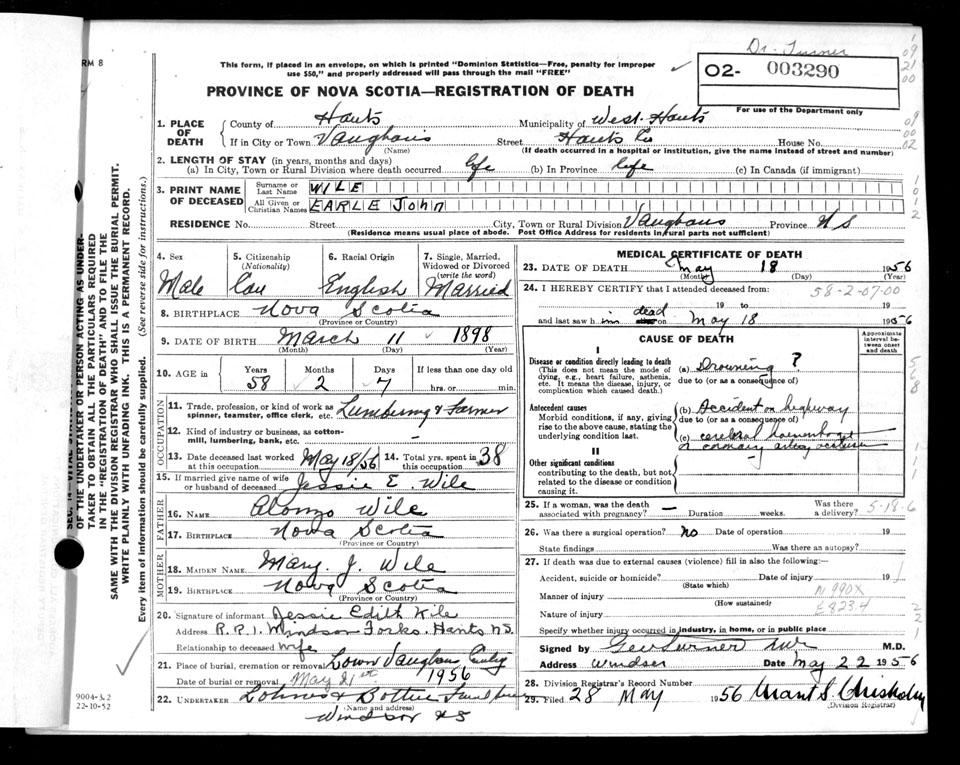 RM 8
Dr. Turner
This form, if placed in an envelope, on which is printed "Dominion Statistics—Free, penalty for improper
use $50," and properly addressed will pass through the mail "FREE"
02- 003290
PROVINCE OF NOVA SCOTIA—REGISTRATION OF DEATH
For use of the Department only
1. PLACE OF DEATH
County of Hants Municipality of West Hants
If in City or Town Vaughans Street Hants Co House No.
(Name) (If death occurred in a hospital or institution, give the name instead of street and number)
2. LENGTH OF STAY (in years, months and days)
(a) In City, Town or Rural Division where death occurred life (b) In Province life (c) In Canada (if immigrant)
3. PRINT NAME OF DECEASED
Surname or Last Name WILE
All Given or Christian Names EARLE John
RESIDENCE No. Street City, Town or Rural Division Vaughans Province N S
(Residence means usual place of abode. Post Office Address for residents in rural parts not sufficient)
4. Sex Male
5. Citizenship (Nationality) Can
6. Racial Origin English
7. Single, Married, Widowed or Divorced (write the word) Married
8. BIRTHPLACE Nova Scotia
(Province or Country)
9. DATE OF BIRTH March 11 1898
(Month) (Day) (Year)
10. AGE in Years 58 Months 2 Days 7 If less than one day old hrs. or min.
OCCUPATION
11. Trade, profession, or kind of work as spinner, teamster, office clerk, etc. Lumbering & Farmer
12. Kind of industry or business, as cotton-mill, lumbering, bank, etc.
13. Date deceased last worked at this occupation May 18/56 14. Total yrs. spent in this occupation 38
15. If married give name of wife or husband of deceased Jessie E. Wile
FATHER
16. NAME Alonzo Wile
17. BIRTHPLACE Nova Scotia
(Province or Country)
MOTHER
18. MAIDEN NAME Mary. J. Wile
19. BIRTHPLACE Nova Scotia
(Province or Country)
20. Signature of informant Jessie Edith Wile
Address R.R.1. Windsor Forks. Hants N.S.
Relationship to deceased wife
21. Place of burial, cremation or removal Lown Vaughans
Date of burial or removal May 21st 1956
22. UNDERTAKER
(Name and address)
Windsor N S
MEDICAL CERTIFICATE OF DEATH
23. DATE OF DEATH May 18 1956
(Month) (Day) (Year)
24. I HEREBY CERTIFY that I attended deceased from:
58-2-07-00
19 to 19
and last saw him dead on May 18 1956
CAUSE OF DEATH
Approximate interval between onset and death
I
Disease or condition directly leading to death
(This does not mean the mode of dying, e.g., heart failure, asthenia, etc. It means the disease, injury, or complication which caused death.)
(a) Drowning ?
due to (or as a consequence of)
Antecedent causes
Morbid conditions, if any, giving rise to the above cause, stating the underlying condition last.
(b) Accident on highway
due to (or as a consequence of)
(c) cerebral haemorrhage
or coronary artery
II
Other significant conditions
contributing to the death, but not related to the disease or condition causing it.
25. If a woman, was the death associated with pregnancy? — Duration weeks. Was there a delivery?
5-18-6
26. Was there a surgical operation? No Date of operation 19
State findings Was there an autopsy?
27. If death was due to external causes (violence) fill in also the following:—
Accident, suicide or homicide? Date of injury 19
(State which)
Manner of injury N990X
(How sustained)
Nature of injury E823.4
Specify whether injury occurred in industry, in home, or in public place
Signed by Geo Turner M.D.
Address Windsor Date May 22 1956
28. Division Registrar's Record Number
29. Filed 28 May 1956 Grant S. Chisholm
(Division Registrar)
OF THE UNDERTAKER OR PERSON ACTING AS UNDER-
TAKER TO OBTAIN ALL THE PARTICULARS REQUIRED
IN THE "REGISTRATION OF DEATH" AND TO FILE THE
SAME WITH THE DIVISION REGISTRAR WHO SHALL ISSUE THE BURIAL PERMIT.
WRITE PLAINLY WITH UNFADING INK. THIS IS A PERMANENT RECORD.
Every item of information should be carefully supplied. (See reverse side for instructions.)
22-10-52